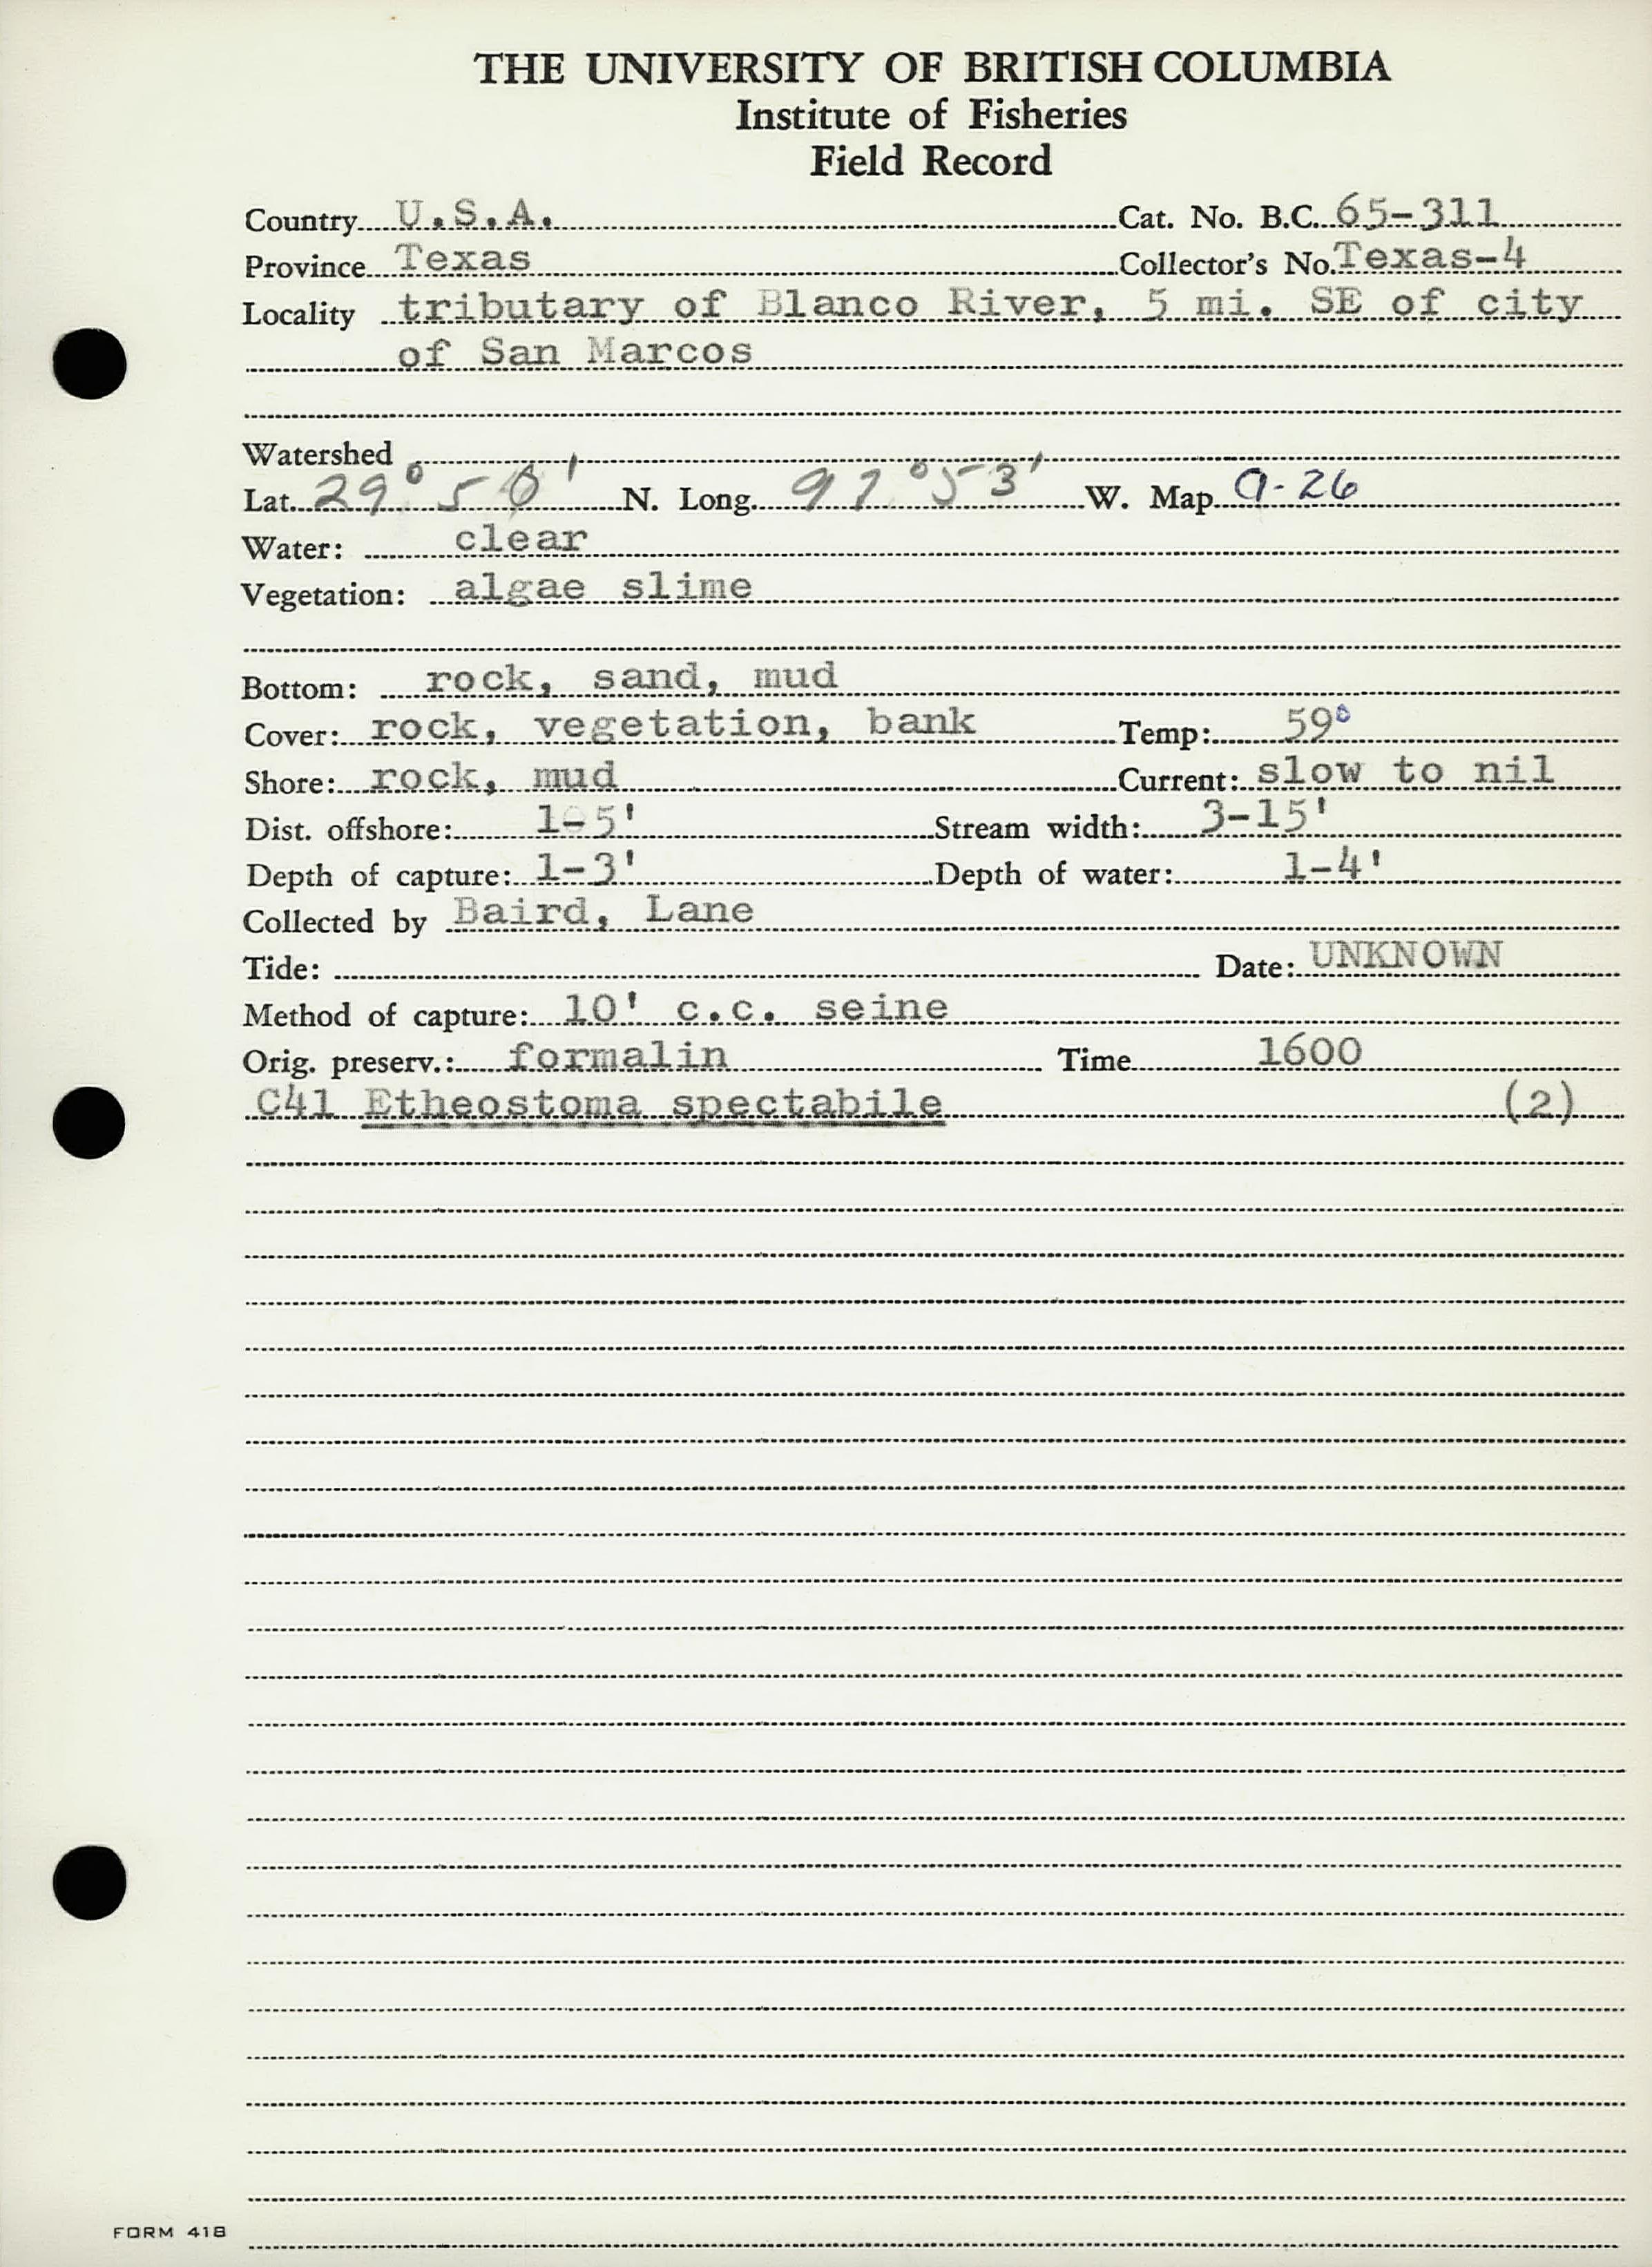 THE UNIVERSITY OF BRITISH COLUMBIA
Institute of Fisheries
Field Record
Country U.S.A. Cat. No. B.C. 65-311
Province Texas Collector's No. Texas-4
Locality tributary of Blanco River, 5 mi. SE of city
of San Marcos
Watershed
Lat. 29° 50' N. Long. 97° 53' W. Map A-26
Water: clear
Vegetation: algae slime
Bottom: rock, sand, mud
Cover: rock, vegetation, bank Temp: 59°
Shore: rock, mud Current: slow to nil
Dist. offshore: 1-5' Stream width: 3-15'
Depth of capture: 1-3' Depth of water: 1-4'
Collected by Baird, Lane
Tide: Date: UNKNOWN
Method of capture: 10' c.c. seine
Orig. preserv.: formalin Time 1600
C41 Etheostoma spectabile (2)
FORM 418